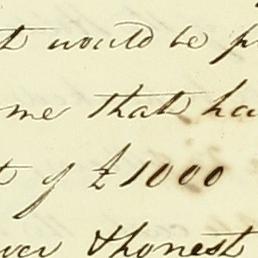 t would be p
me that ha
t of £1000
ver & honest